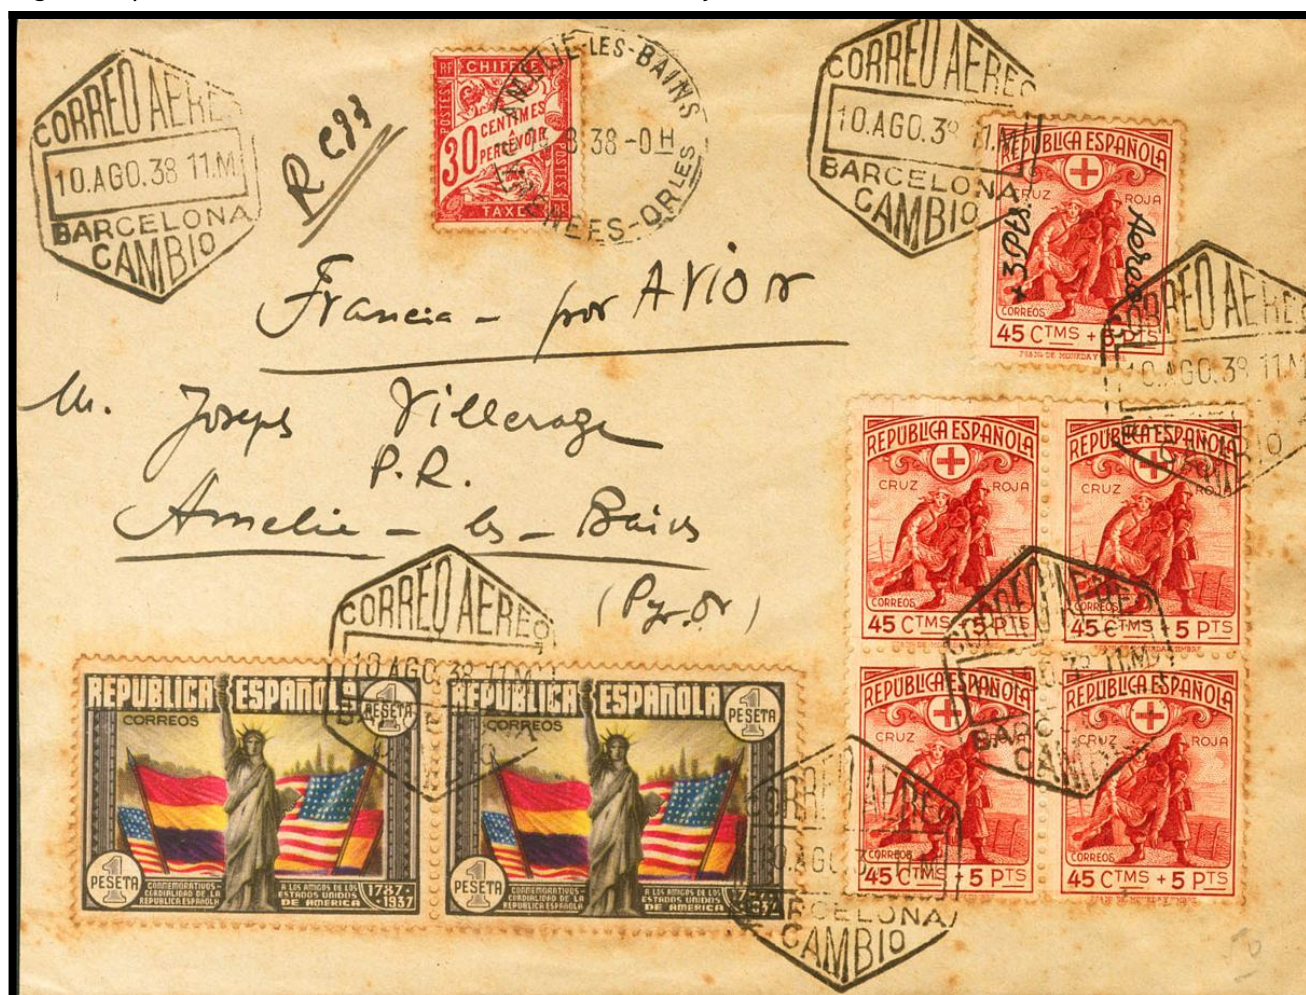 CORREO AEREO
10.AGO.38 11.M
BARCELONA
CAMBIO
R C33
RF CHIFFRE
POSTES
30 CENTIMES
A
PERCEVOIR
POSTES
TAXE
AMELIE-LES-BAINS
8 38 -0H
PYRENEES-ORLES
CORREO AEREO
10.AGO.38 11.M
BARCELONA
CAMBIO
REPÚBLICA ESPAÑOLA
CRUZ ROJA
+ 3 Pts. Aereo
CORREOS
45 CTMS + 5 PTS
CORREO AEREO
10.AGO.38 11.M
Francia - por AVION
M. Joseph Villeroge
P.R.
Amelie - les - Bains
(Pyr-Or)
REPÚBLICA ESPAÑOLA
CRUZ ROJA
CORREOS
45 CTMS + 5 PTS
REPÚBLICA ESPAÑOLA
CRUZ ROJA
CORREOS
45 CTMS + 5 PTS
CORREO AEREO
10.AGO.38 11.M
CORREO AEREO
11.M
CAMBIO
REPÚBLICA ESPAÑOLA
CRUZ ROJA
CORREOS
45 CTMS + 5 PTS
REPÚBLICA ESPAÑOLA
CRUZ ROJA
CORREOS
45 CTMS + 5 PTS
REPUBLICA ESPAÑOLA
CORREOS
1 PESETA
1 PESETA
CONMEMORATIVOS-
CORDIALIDAD DE LA
REPUBLICA ESPAÑOLA
A LOS AMIGOS DE LOS
ESTADOS UNIDOS
DE AMERICA
1787-
1937
REPUBLICA ESPAÑOLA
CORREOS
1 PESETA
1 PESETA
CONMEMORATIVOS-
CORDIALIDAD DE LA
REPUBLICA ESPAÑOLA
A LOS AMIGOS DE LOS
ESTADOS UNIDOS
DE AMERICA
1937
CORREO AEREO
BARCELONA
CAMBIO